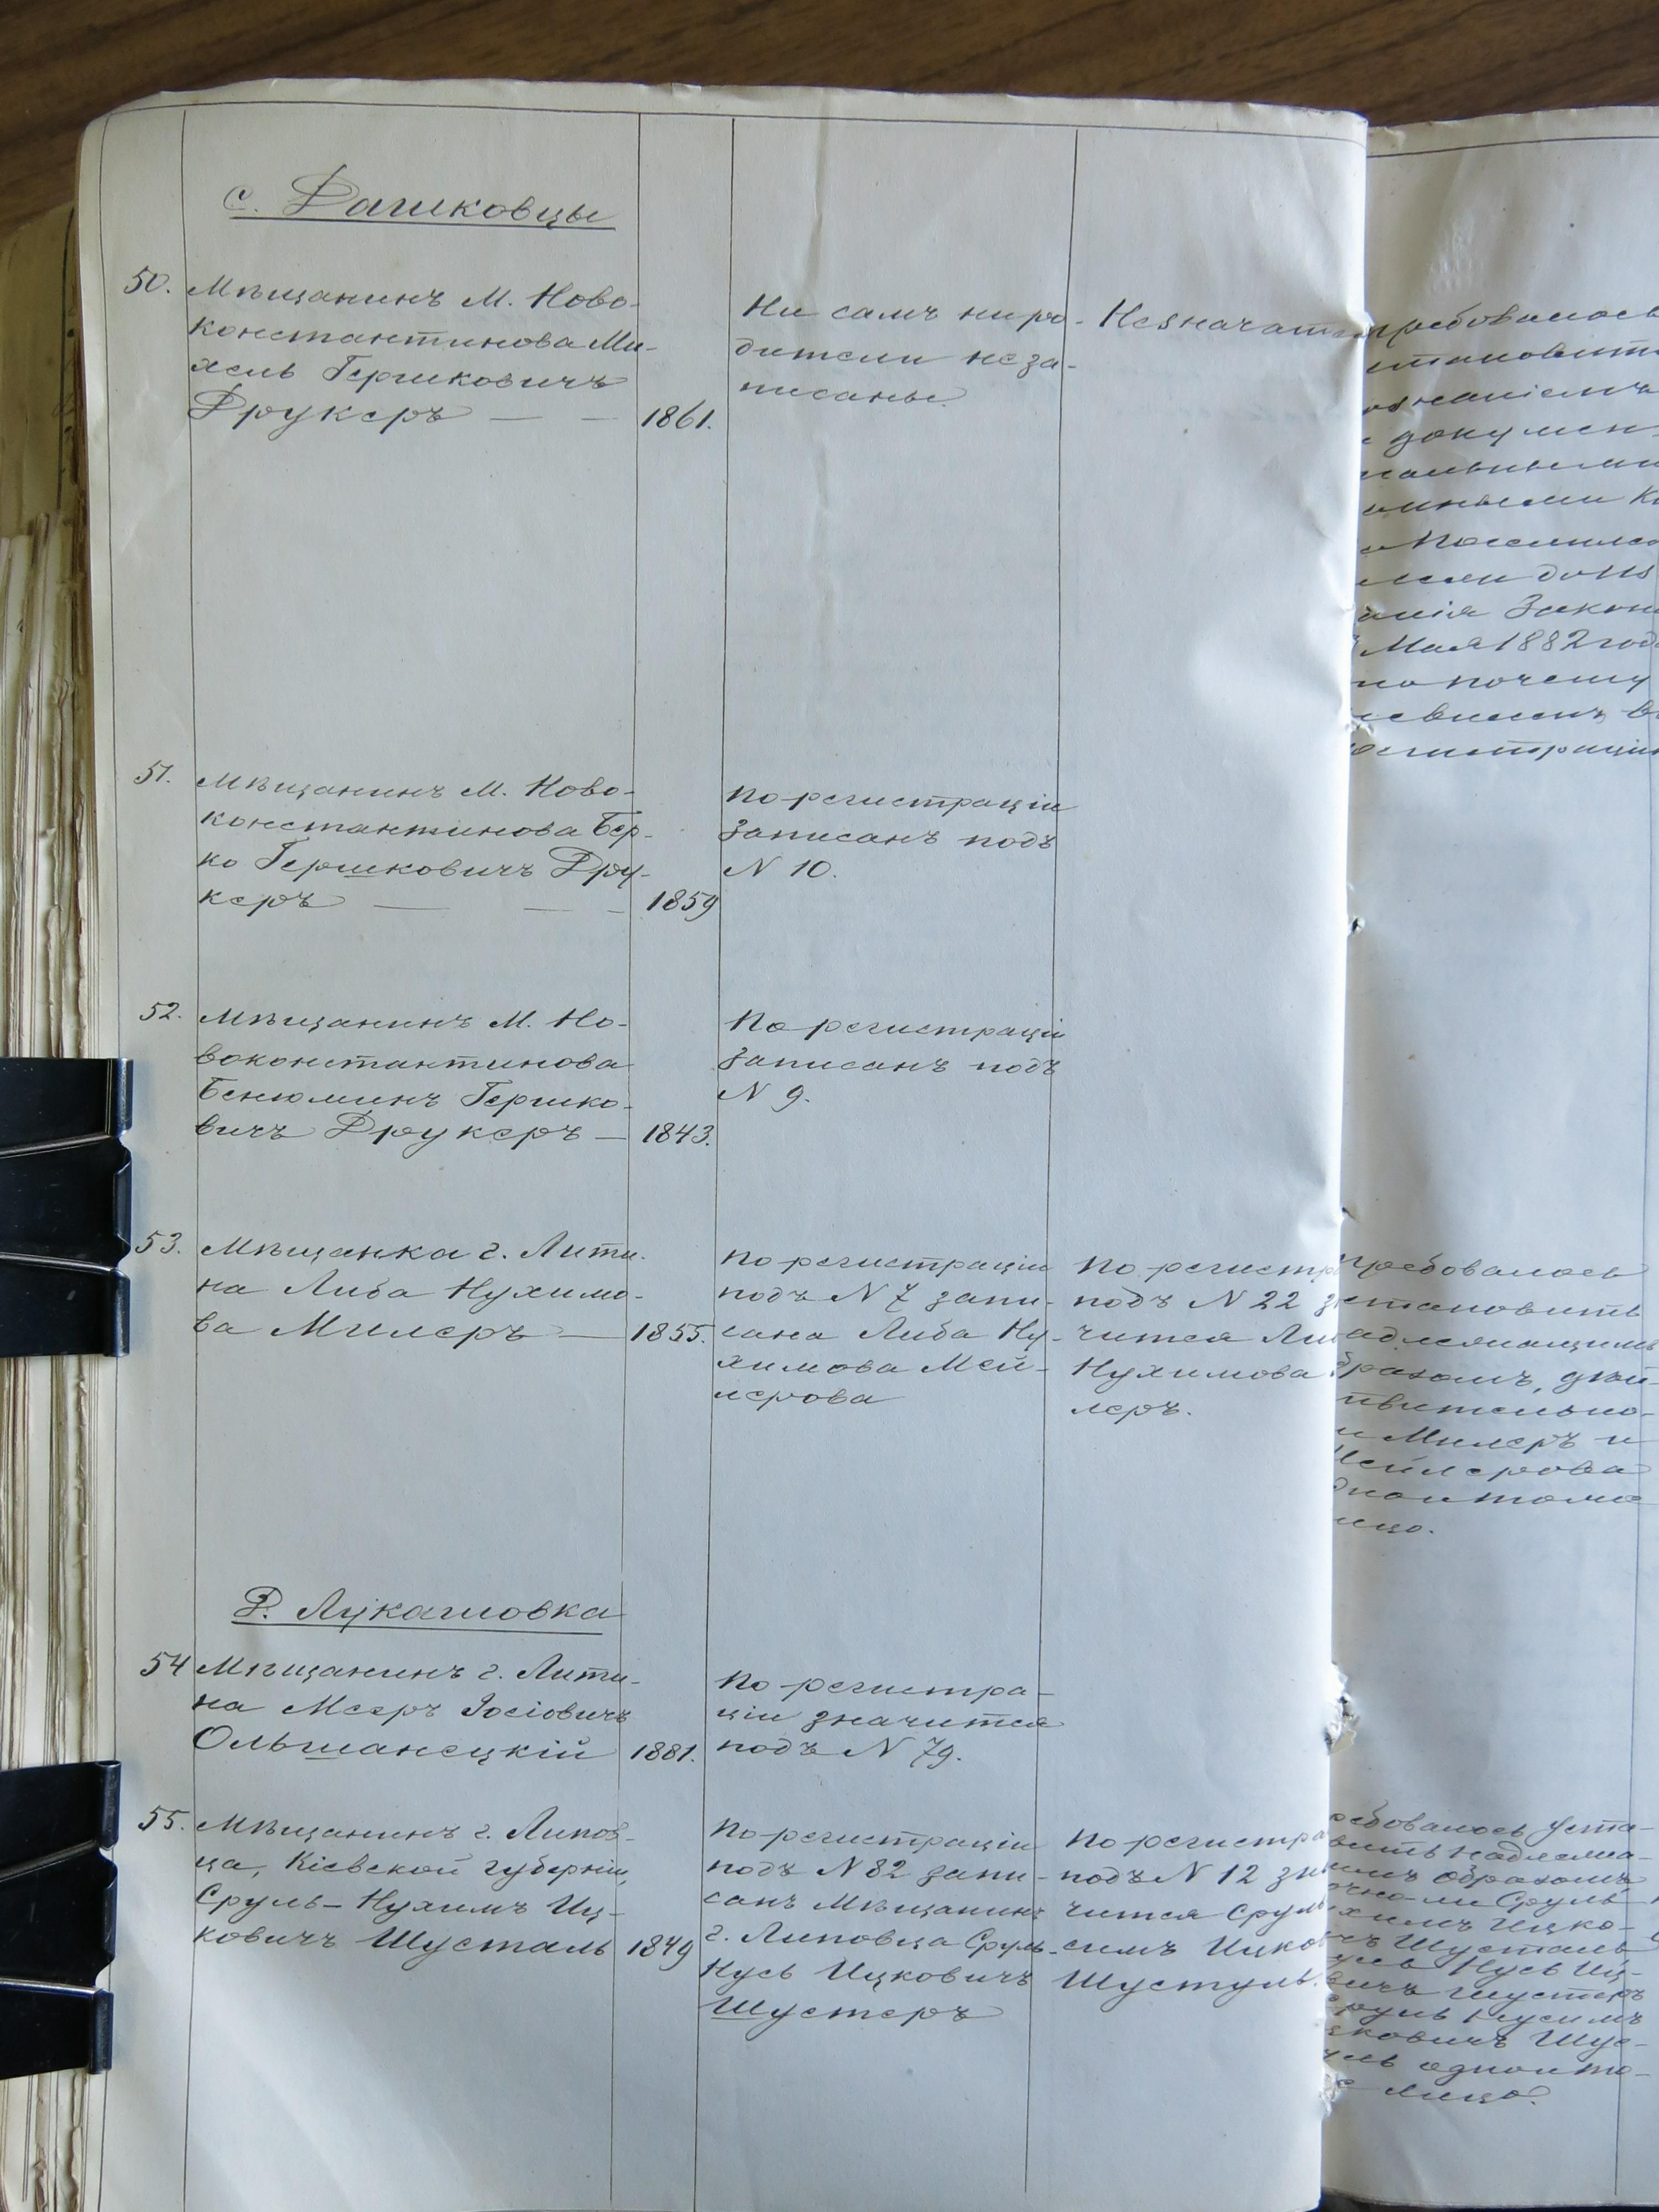 с. Дашковцы
50. Мѣщанинъ м. Ново-
константинова Ми-
хель Гершковичъ
Друкеръ — — 1861.
Ни самъ ни ро-
дители не за-
писаны.
Не значатся
требовалось
становить
дознаніемъ
и докумен
Мая 1882 год
но почему
регистрацію
51. Мѣщанинъ м. Ново-
константинова Бер-
ко Гершковичъ Дру-
керъ — — — 1859
По регистраціи
записанъ подъ
N 10.
52. Мѣщанинъ м. Но-
воконстантинова
Бенюминъ Гершко-
вичъ Друкеръ — 1843.
По регистраціи
записанъ подъ
N 9.
53. Мѣщанка г. Лити-
на Либа Нухимо-
ва Милеръ — 1855.
По регистраціи
подъ N 7 запи-
сана Либа Ну-
химова Мей-
лерова
По регистра
подъ N 22 з
чится Ли
Нухимова
леръ.
требовалось
становить
адлежащимъ
бразомъ, дѣй-
твительно-
и Милеръ и
Мейлерова
дно и тоже
ицо.
Д. Лукашовка
54 Мѣщанинъ г. Лити-
на Мееръ Іосіовичъ
Ольшанецкій 1881.
По регистра-
ціи значится
подъ N 79.
55. Мѣщанинъ г. Липов-
ца, Кіевской губерніи,
Сруль-Нухимъ Иц-
ковичъ Шусталь 1849
По регистраціи
подъ N 82 запи-
санъ мѣщанинъ
г. Липовца Сруль-
Нусь Ицковичъ
Шустеръ
По регистра
подъ N 12 зн
чится Сруль
симъ Ицков
Шустуль.
ребовалось уста-
вить надлежа-
имъ образомъ
очно ли Сруль-
химъ Ицко-
чъ Шусталь
уль Нусь Иц-
вичъ Шустеръ
Сруль Нусимъ
цковичъ Шус-
уль одно и то-
е лицо.